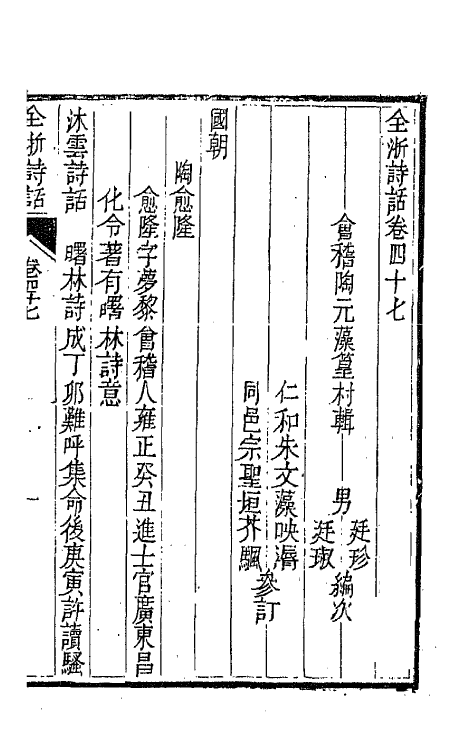 全浙詩話卷四十七
會稽陶元藻篁村輯
男
廷珍
廷琡
編次
仁和朱文藻映漘
同邑宗聖垣芥颿
參訂
國朝
陶愈隆
愈隆字夢黎會稽人雍正癸丑進士官廣東昌
化令著有曙林詩意
沐雲詩話　曙林詩成丁卯難呼集命後庚寅許讀騷
全浙詩話
卷四十七
一